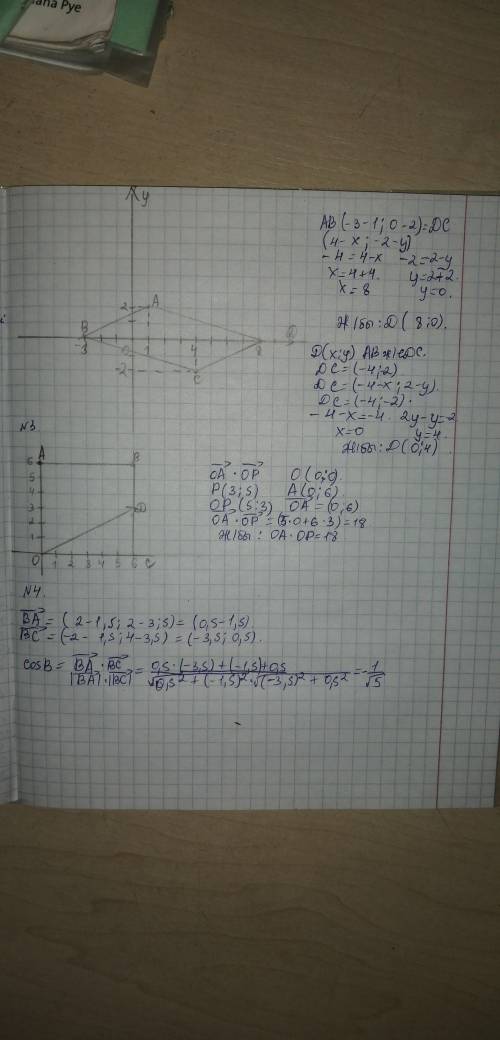 iana Pye
y
AB(-3-1; 0-2)=DC
(4-x; -2-y)
-4=4-x -2=-2-y
x=4+4. y=2-2.
x=8 y=0.
Ж/бы: D( 8;0).
2 A
B
-3 0 1 4 8 D
-2 C
D(x;y) AB ж/е DC.
DC=(-4;-2)
DC=(-4-x; 2-y)
DC=(-4;-2).
-4-x=-4. 2y-y=-2
x=0 y=4.
Ж/бы: D(0;4)
N3.
A B
6
5
4
3 D
2
1
0 1 2 3 4 5 6 C
OA · OP O(0;0).
P(3;5) A(0;6)
OP (5;3) OA=(0;6)
OA · OP = (5·0+6·3)=18
Ж/бы: OA·OP=18
N4.
BA = ( 2-1,5; 2-3;5) = (0,5-1,5)
BC = (-2- 1,5; 4-3,5) = (-3,5; 0,5).
cosB = BA · BC / |BA|·|BC| = 0,5·(-3,5)+(-1,5)+0,5 / √0,5²+(-1,5)²·√(-3,5)²+0,5² = -1/√5